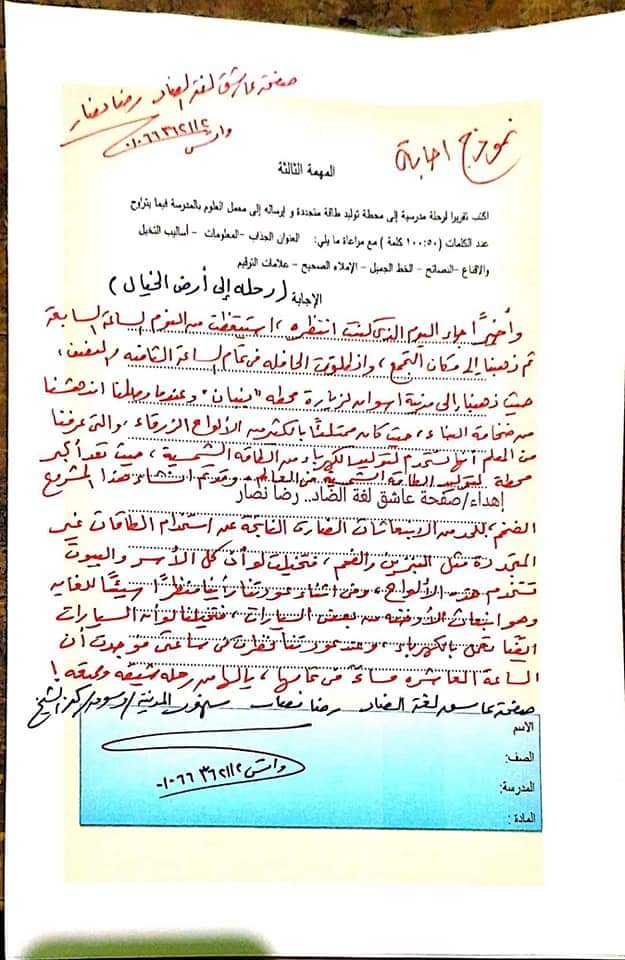 صفحة عاشق لغة الضاد رضا نصار
واتس ٠١٠٦٦٣٦٢١١٢
نموذج اجابة
المهمة الثالثة
اكتب تقريرا لرحلة مدرسية إلى محطة توليد طاقة متجددة و إرساله إلى معمل العلوم بالمدرسة فيما يتراوح
عدد الكلمات (١٠٠:٥٠ كلمة) مع مراعاة ما يلي: العنوان الجذاب – المعلومات – أساليب التخيل
والاقناع –النصائح – الخط الجميل – الإملاء الصحيح – علامات الترقيم
الإجابة (رحله إلى أرض الخيال)
وأخيرًا جاء اليوم الذى كنت انتظره، استيقظت من النوم الساعة السابعة
ثم ذهبنا إلى مكان التجمع، وانطلقت الحافله فى تمام الساعة الثامنه والنصف،
حيث ذهبنا إلى مدينة اسوان لزيارة محطه "بنبان" وعندما وصلنا اندهشنا
من ضخامة البناء، حيث كانه ممتلئًا بالكثير من الألواح الزرقاء، والتى عرفنا
من المعلم أنها تستخدم لتوليد الكهرباء من الطاقه الشمسية، حيث تعد أكبر
محطة لتوليد الطاقه الشمسية من العالم، وقد تم انشاء هذا المشروع
إهداء/صفحة عاشق لغة الضاد.. رضا نصار
الضخم، للحد من الانبعاثات الضارة الناتجة عن استخدام الطاقات غير
المتجددة مثل البنزين والفحم، فتخيلت لو أن كل الأسر والبيوت
تستخدم هذه الألواح، وفى اثناء عودتنا رأينا منظرًا سيئًا للغايه
وهو انبعاث الأدخنه من بعض السيارات، فتخيلنا لو أن السيارات
التى تعمل بالكهرباء، وعند عودتنا نظرت فى ساعتى فوجدت أن
الساعة العاشره مساءً فى تمامها، يالها من رحله شيقه وممتعه!
صفحة عاشق لغة الضاد رضا نصار دسوق/كفر الشيخ
الاسم
الصف:
واتس ٠١٠٦٦٣٦٢١١٢
المدرسة:
المادة :